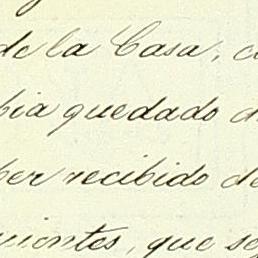 de la Casa, c
bia quedado d
ber recibido de
cientes, que se